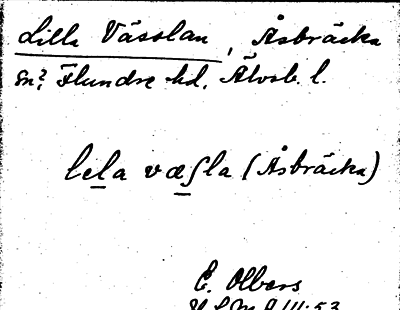 Lilla Vässlan, Åsbräcka
sn, Flundre hd, Älvsb. l.
lela væʃla (Åsbräcka)
E. Olbers